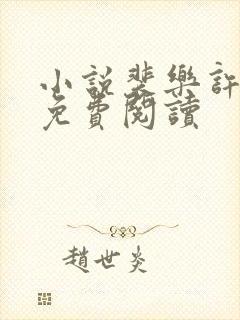 小說裴樂許
免費閱讀
趙世炎